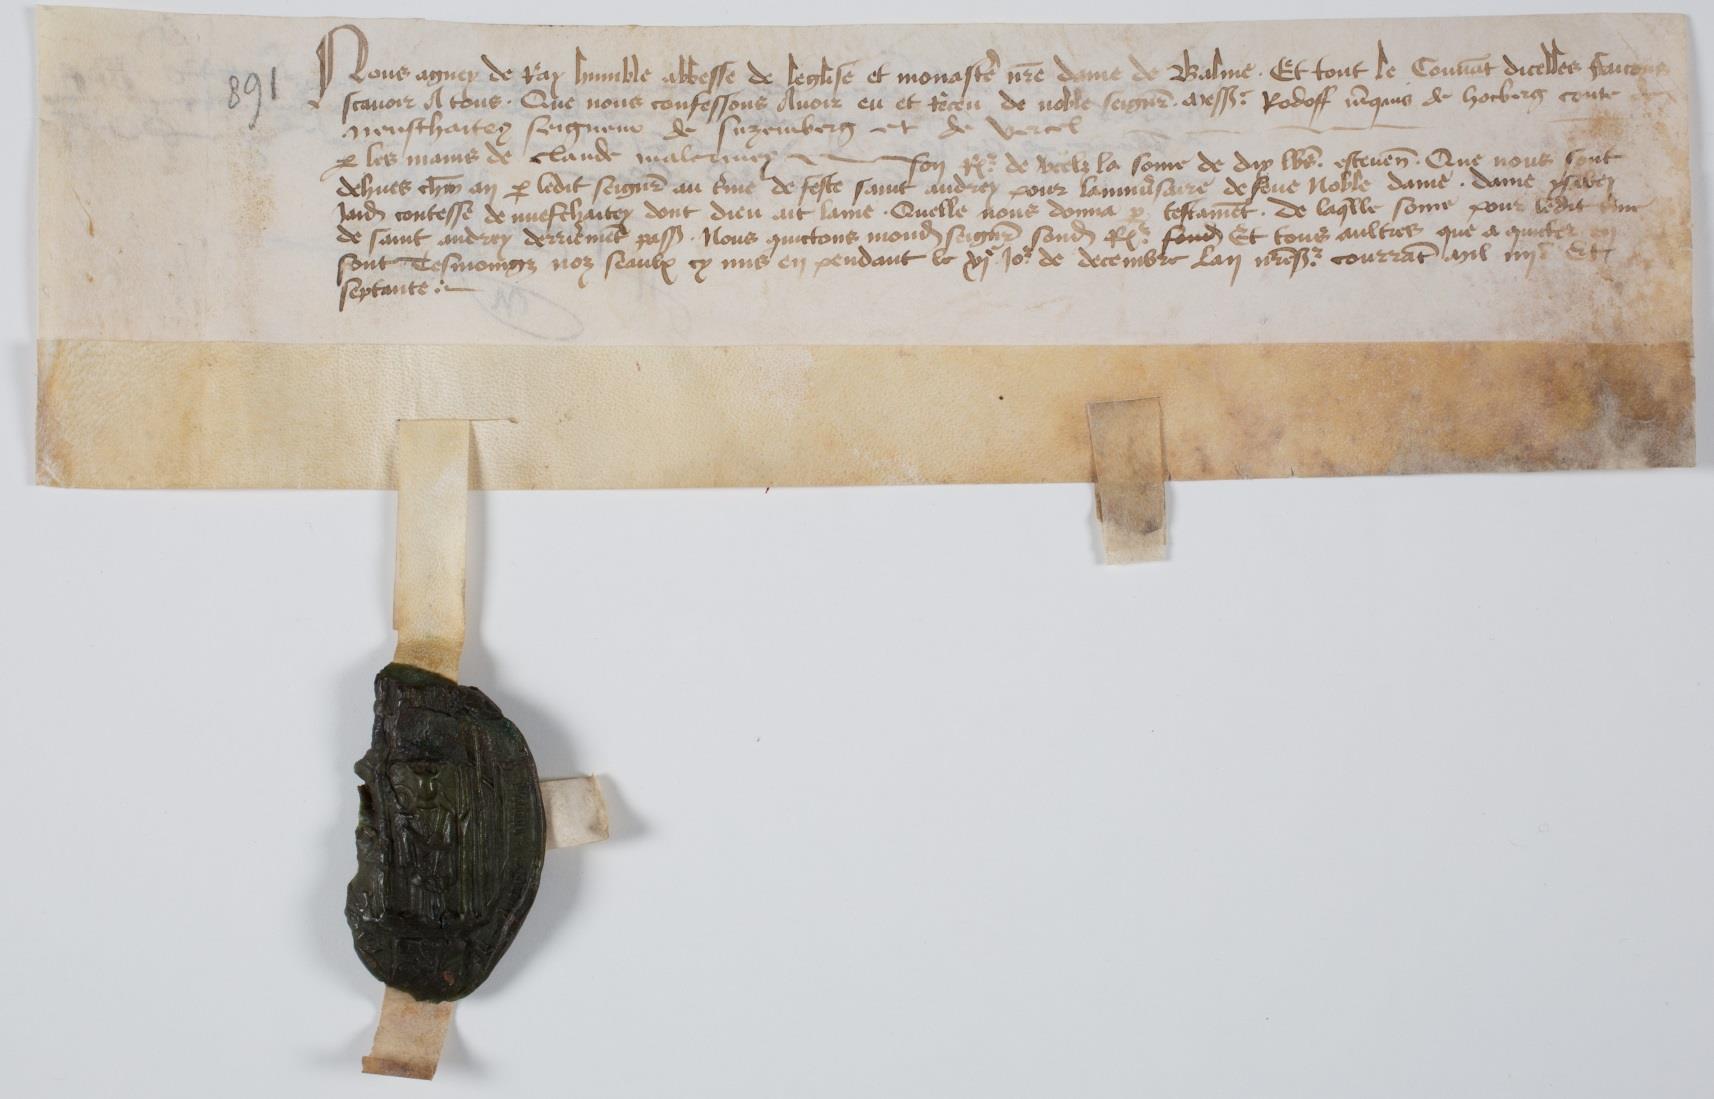 891
Nous agney de Ray humble abbesse de leglise et monastē nr̄e dame de Balme. Et tout le Couuāt dicelles faicons
scauoir A tous. Que nous confessons Auoir eu et receu de noble seigūr. Mess.r Rodoff m̄quis de hocberg conte
neufchaitey seigneur de suzemberg et de vercel
p les mains de Clande malermey son R.r de la some de dix lb̄s. esteuen̄. Que nous sont
dehues chūn an p ledit seigūr au t̄me de feste saint andrey pour lanniūsaire de feue Noble dame. dame ysabey
Jaid contesse de nuefchaitey dont dieu ait lame. Quelle nous donna p testamēt. de laq̄lle some pour ledit t̄me
de saint andrey derriēmēt pass. Nous quictons mond seigūr sond R.r Et tous aultres que a quicter en
sont Tesmoingz noz seaulx cy mis en pendant le vj.e Jo.r de decembre Lan courrāt mil iiij.c Et
septante.